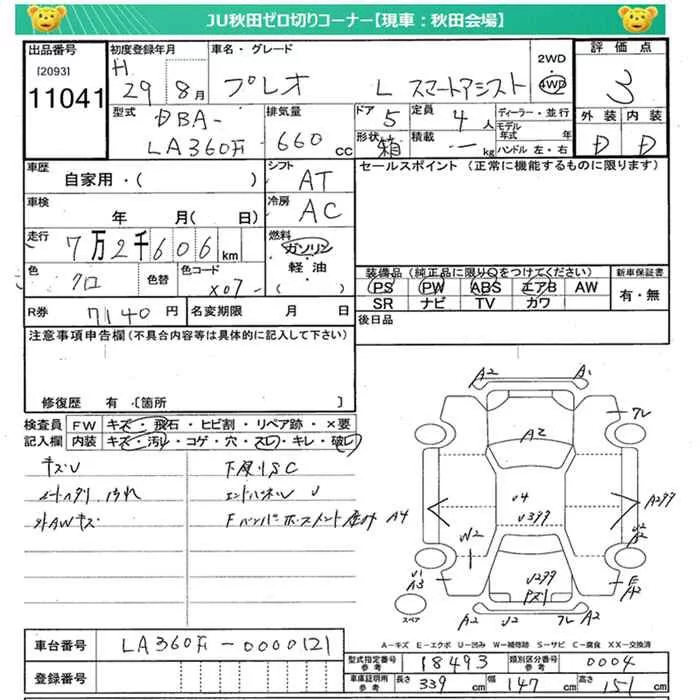 JU秋田ゼロ切りコーナー【現車：秋田会場】
出品番号
[2093]
11041
初度登録年月
H 29 年 8 月
車名・グレード
プレオ L スマートアシスト
2WD
4WD
評価点
3
外装 内装
D D
型式
DBA-
LA360F
排気量
660 cc
ドア 5
定員 4 人
形状 箱
積載 - kg
ディーラー・並行
モデル年式 年
ハンドル 左・右
車歴
自家用・( )
シフト
AT
セールスポイント（正常に機能するものに限ります）
車検
年 月( 日)
冷房
AC
走行
7万2千606km
燃料
ガソリン
・
軽油
色
クロ
色替
色コード
X07-
装備品（純正品に限り○をつけてください）
PS PW ABS エアB AW
SR ナビ TV カワ
新車保証書
有・無
R券
7140円
名変期限 月 日
後日品
注意事項申告欄（不具合内容等は具体的に記入して下さい）
修復歴 有〔箇所 〕
検査員記入欄
FW キズ・飛石・ヒビ割・リペア跡・×要
内装 キズ・汚レ・コゲ・穴・スレ・キレ・破レ
キズU
下廻りSC
シートヘタリ
エンドパネル U
外AWキズ
A2 A1
フレ
A2
U4
A4
W2
U2
A2
U1
A3
E
A2
A2 U2 フレ A2
スペア
A-キズ E-エクボ U-凹み W-補修跡 S-サビ C-腐食 XX-交換済
車台番号
LA360F-0000121
登録番号
型式指定番号 参考
18493
類別区分番号 参考
0004
車庫証明用 参考
長さ 339 cm 幅 147 cm 高さ 151 cm